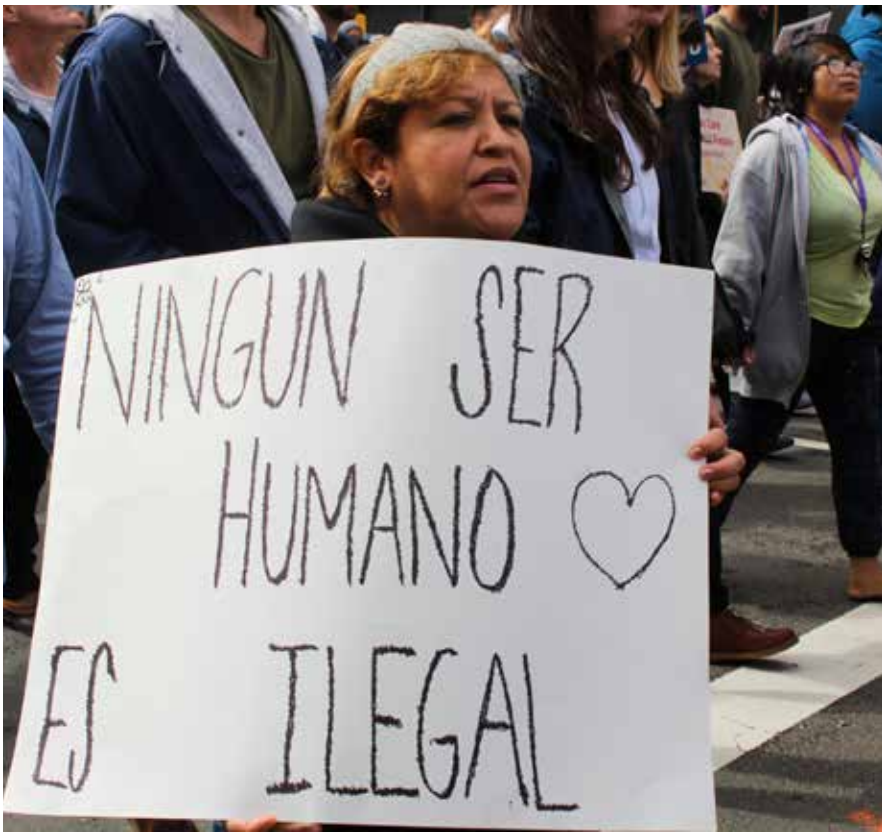 NINGUN SER
HUMANO
ES ILEGAL